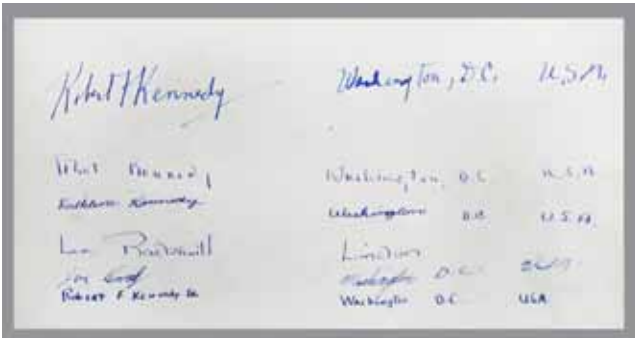 Robert F Kennedy Washington, D.C. U.S.A.
Ethel Kennedy Washington, D.C. U.S.A
Kathleen Kennedy Washington D.C. U.S.A.
Lee Radziwill London
Washington D.C.
Robert F Kennedy Jr. Washington D.C. USA